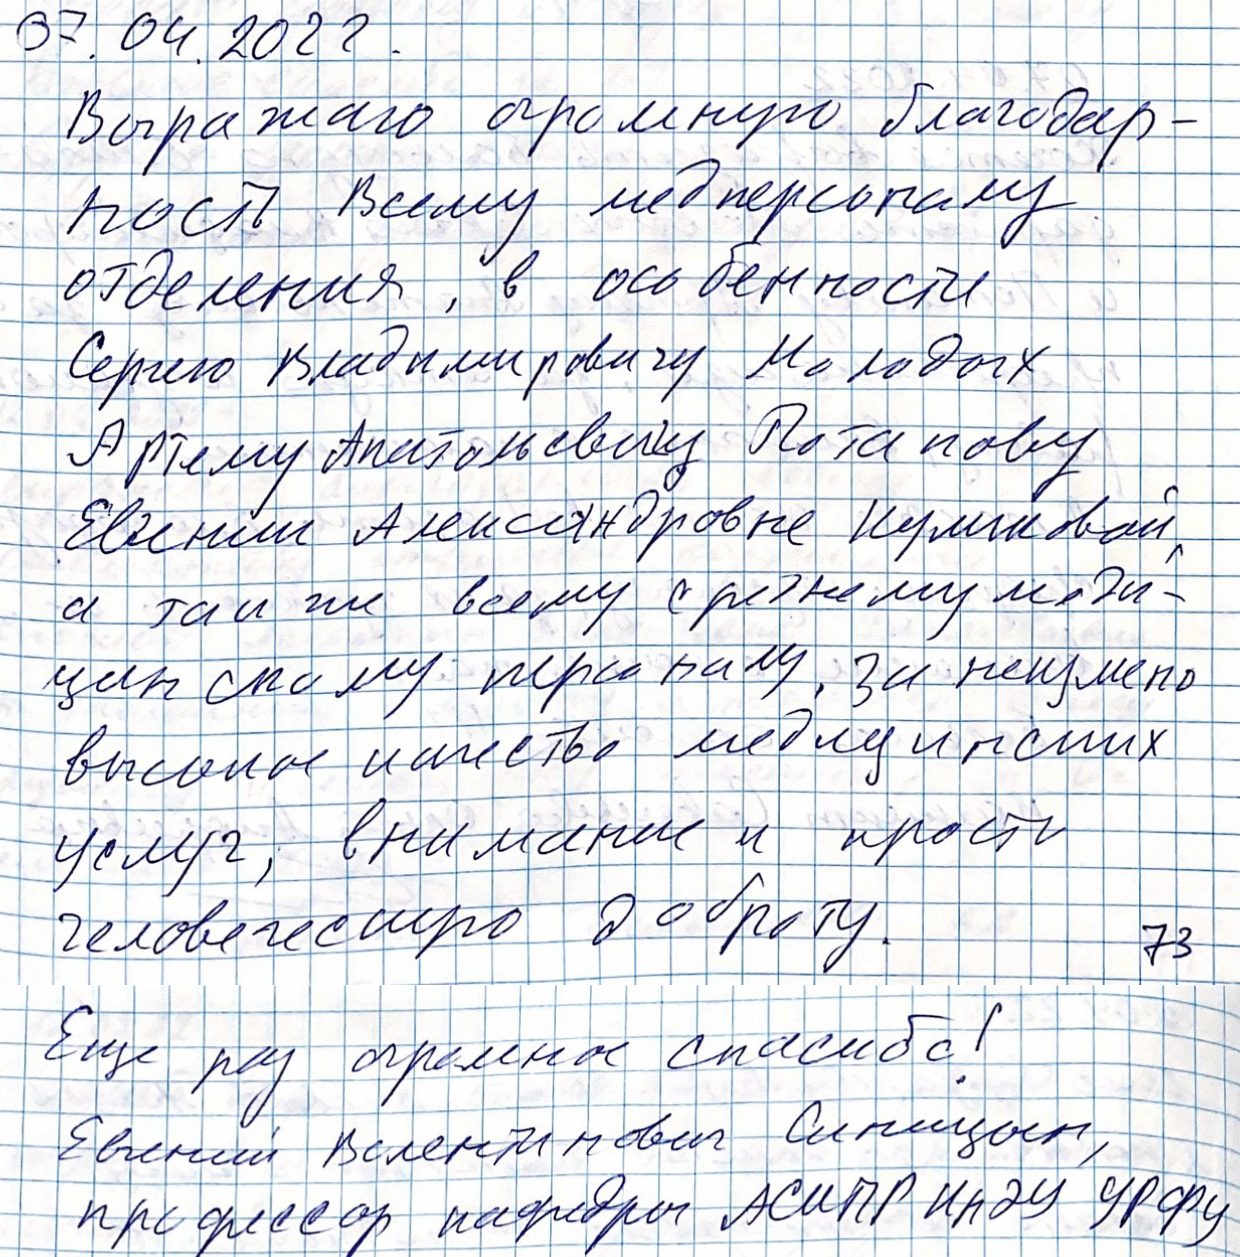 07.04.2022.
Выражаю огромную благодар-
ность всему медперсоналу
отделения, в особенности
Сергею Владимировичу Молодых
Артему Анатольевичу Потапову
Евгении Александровне Куликовой,
а также всему среднему меди-
цинскому персоналу, за неизмено
высокое качество медицинских
услуг, внимание и просто
человеческую доброту.
73
Еще раз огромное спасибо!
Евгений Валентинович Синицын,
профессор кафедры АСИПР ИнЭУ УРФУ